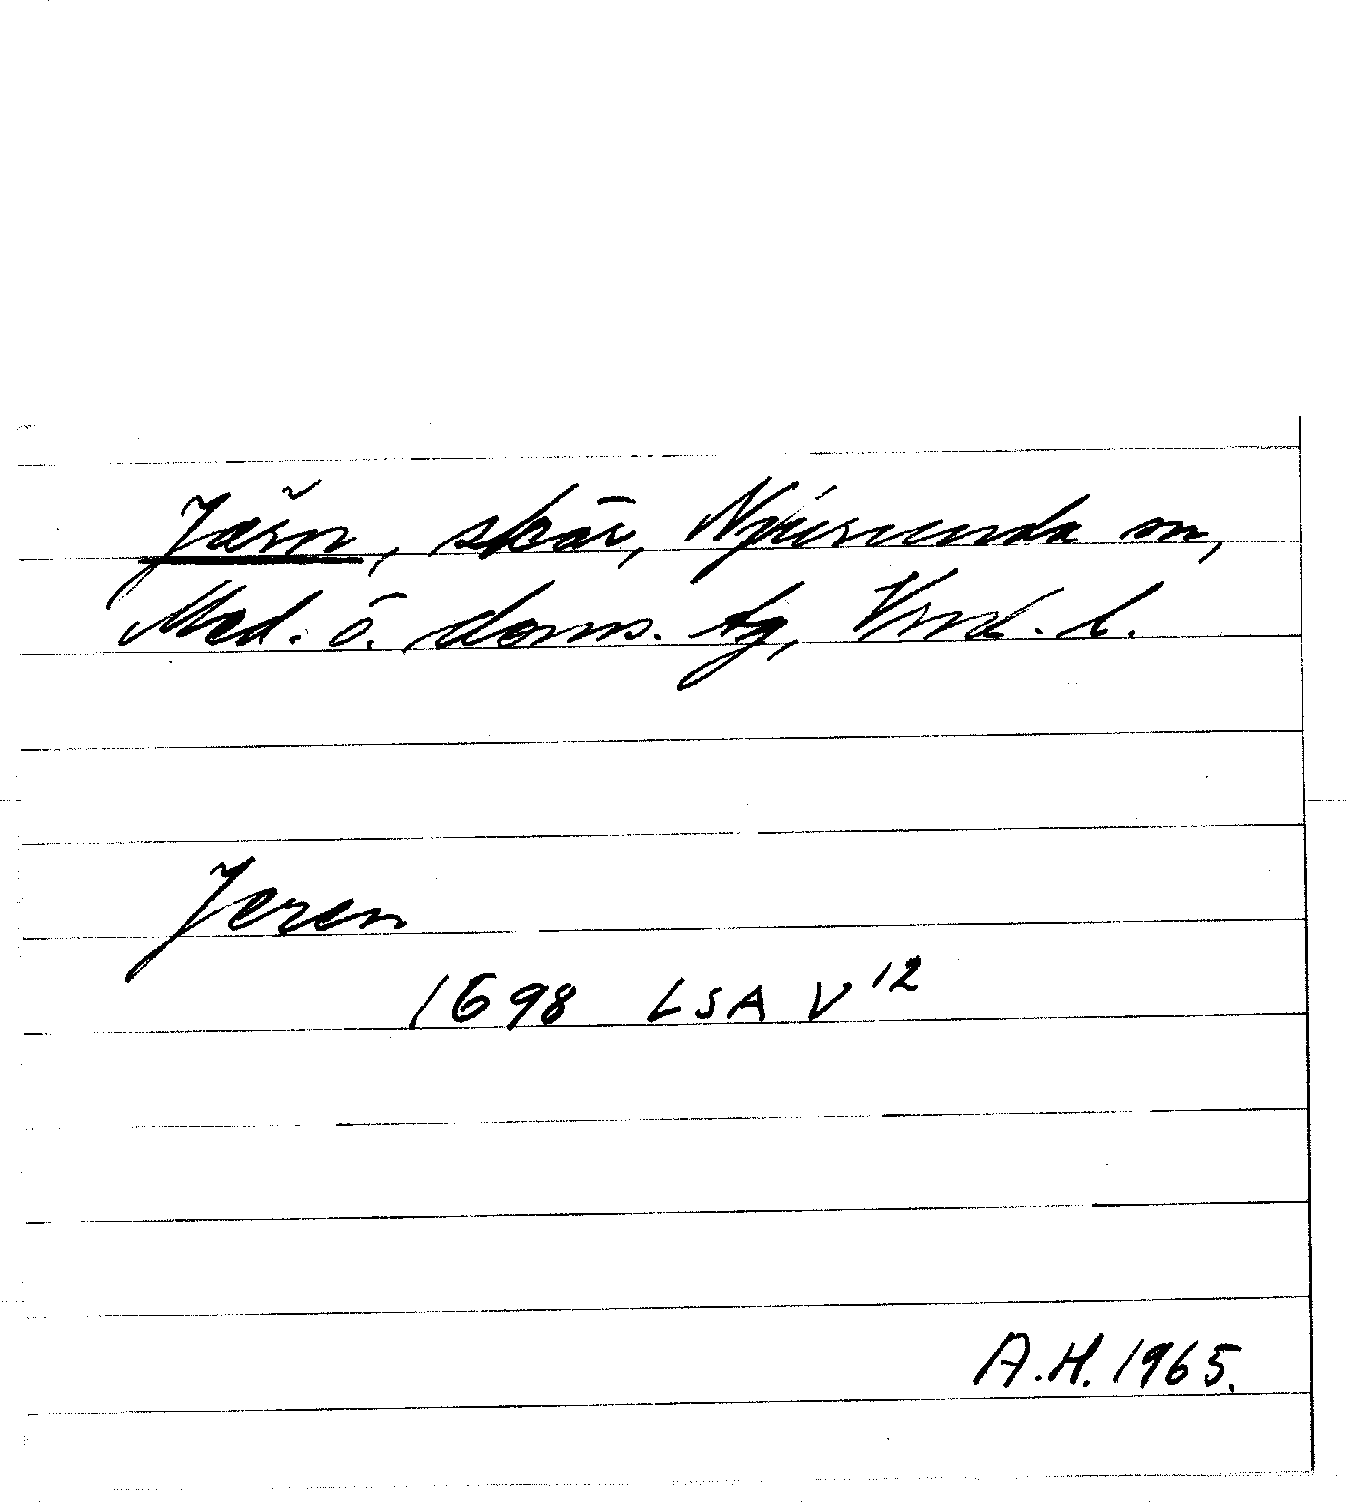 Järn, skär, Njurunda sn,
Med. ö. doms. tg, Vnrl. l.
Jeren
1698 LSA V 12
A.H. 1965.